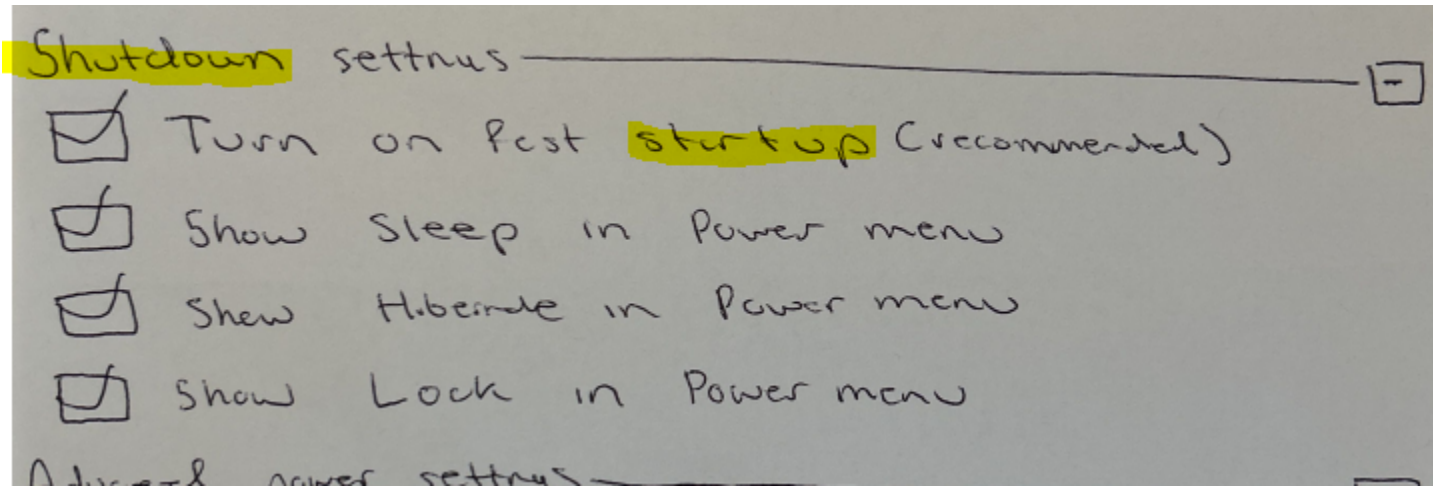 Shutdown settings
Turn on fast startup (recommended)
Show Sleep in Power menu
Show Hibernate in Power menu
Show Lock in Power menu
Advanced power settings